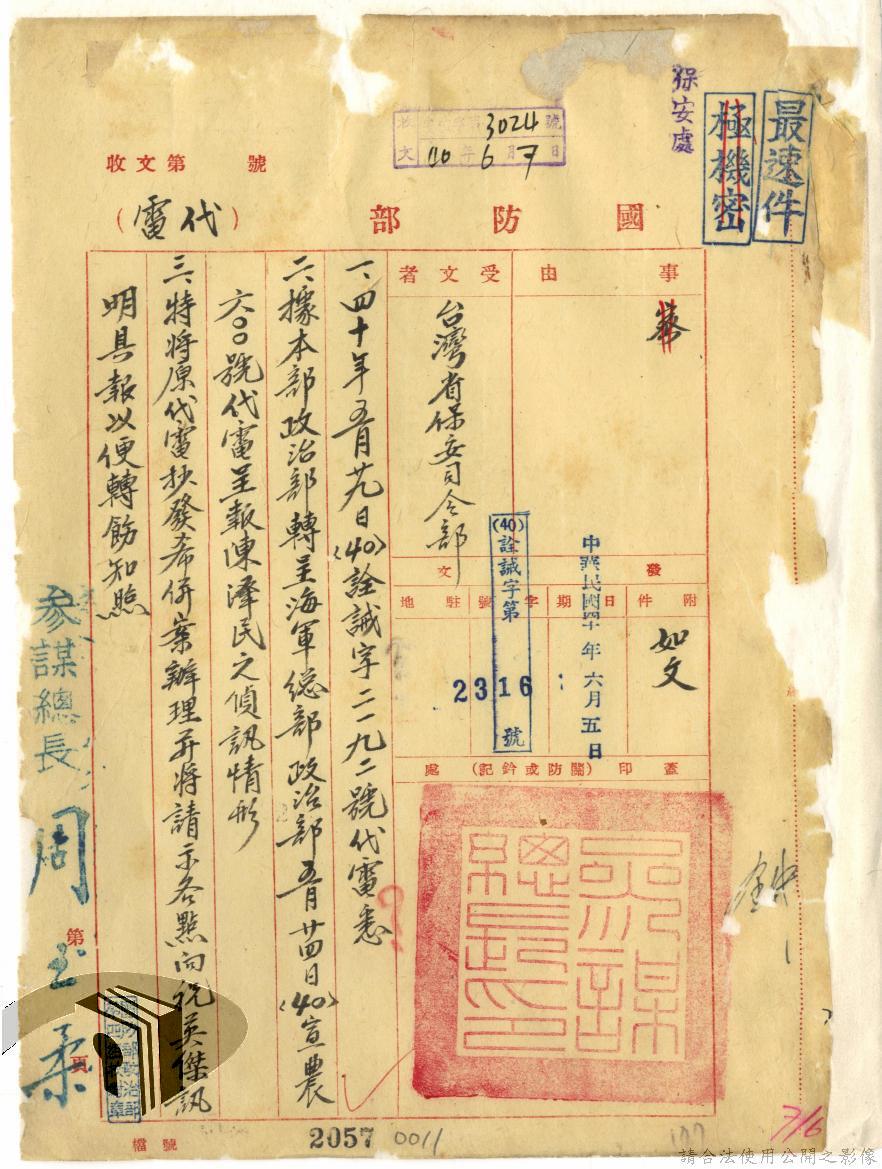 最速件
極機密
保安處
收文 3024號
40年6月7日
收文第 號
國防部
(代電)
事由
受文者
台灣省保安司令部
發文
附件
日期
字號
駐地
如文
中華民國四十年六月五日
(40)詮誠字第2316號
蓋印(關防或鈐記)處
參謀總長印
一、四十年五月廿九日(40)詮誠字二一九二號代電悉
二、據本部政治部轉呈海軍總部政治部五月廿四日(40)宣農
六〇〇號代電呈報陳澤民之偵訊情形
三、特將原代電抄發希併案辦理并將請示各點向祝英傑訊
明具報以便轉飭知照
參謀總長周至柔
第 頁
檔號
2057 0011
7/6
請合法使用公開之影像